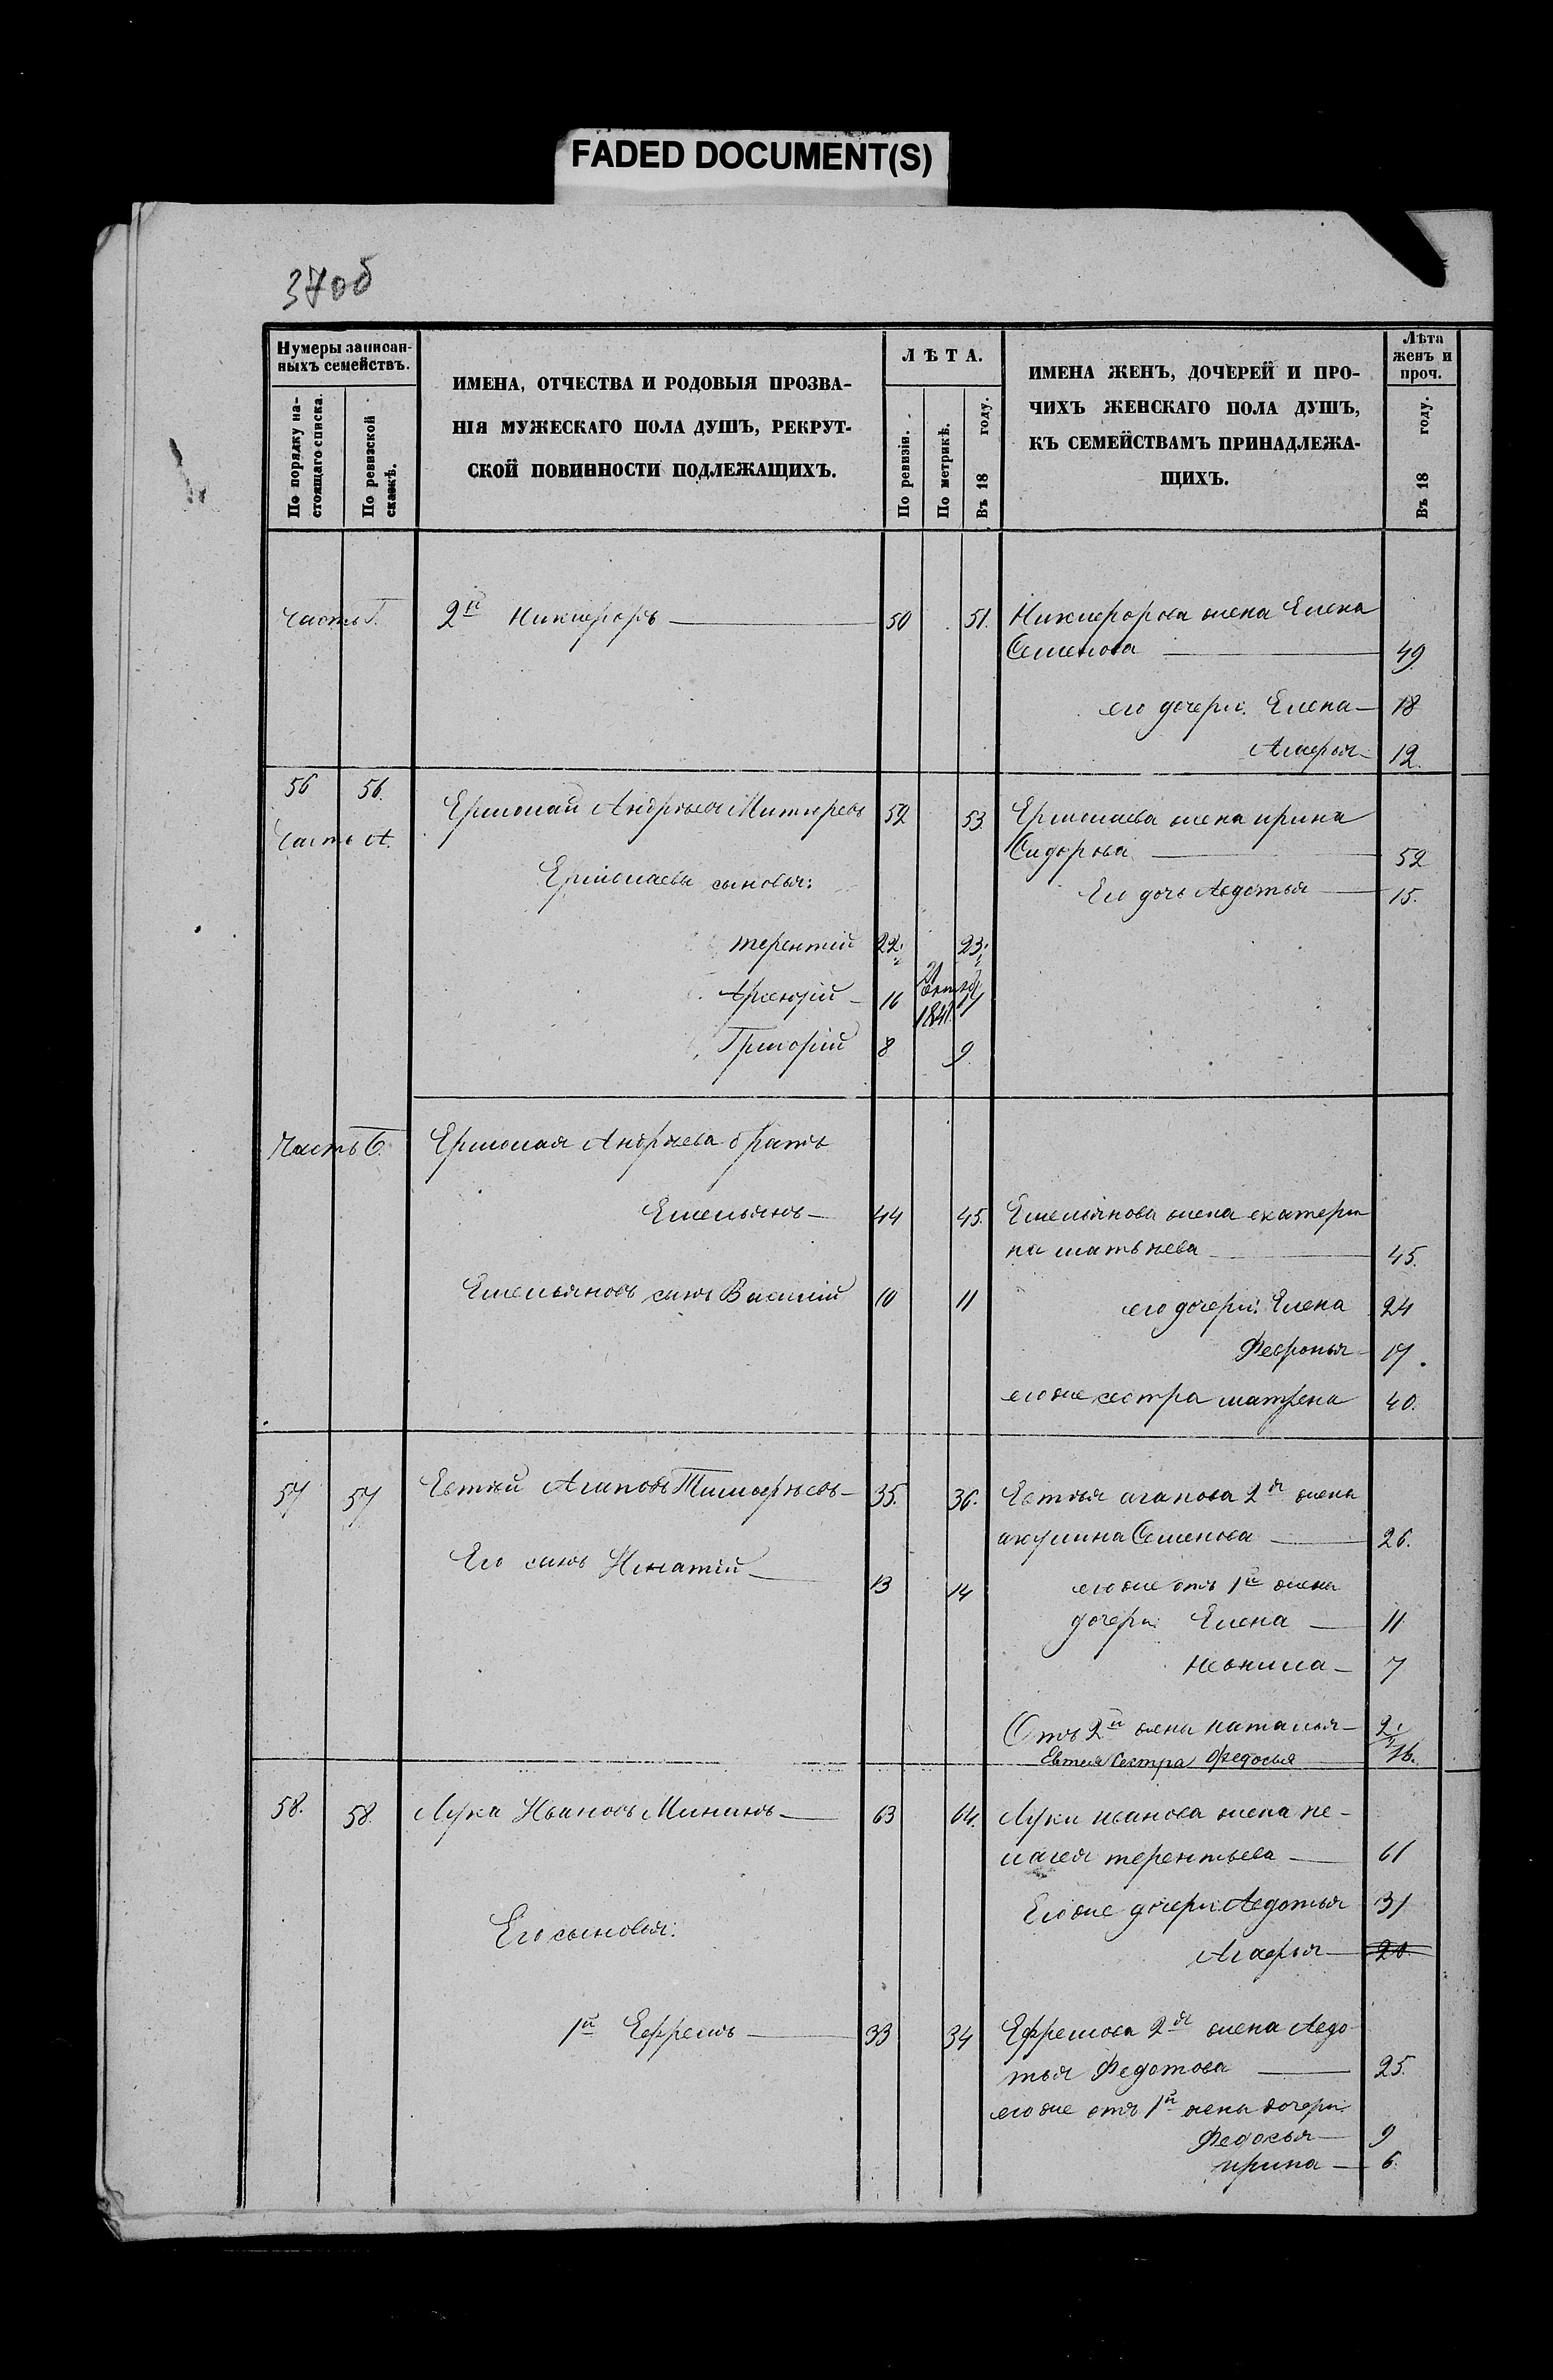 FADED DOCUMENT(S)
37об
Нумеры записан-
ныхъ семействъ.
По порядку на-
стоящаго списка.
По ревизской
сказкѣ.
ИМЕНА, ОТЧЕСТВА И РОДОВЫЯ ПРОЗВА-
НІЯ МУЖЕСКАГО ПОЛА ДУШЪ, РЕКРУТ-
СКОЙ ПОВИННОСТИ ПОДЛЕЖАЩИХЪ.
ЛѢТА.
По ревизіи.
По метрикѣ.
Въ 18 году.
ИМЕНА ЖЕНЪ, ДОЧЕРЕЙ И ПРО-
ЧИХЪ ЖЕНСКАГО ПОЛА ДУШЪ,
КЪ СЕМЕЙСТВАМЪ ПРИНАДЛЕЖА-
ЩИХЪ.
Лѣта
женъ и
проч.
Въ 18 году.
Часть Г. 2й Никифоръ 50 51. Никифорова жена Елена
Семенова 49.
его дочери: Елена 18
Агафья 12.
56 56. Ермолай Андреевъ 52 53. Ермолаева жена ирина
Часть А. Сидорова 52
Ермолаевы сыновья: Его дочь Авдотья 15.
терентій 22 23
Арсеній 16 21 1841 17
Григорій 8 9.
Часть Б. Ермолая Андреева братъ
Емельянъ 44 45. Емельянова жена екатери
на матвѣева 45.
Емельяновъ сынъ Василій 10 11 его дочери: Елена 24
Февронья 17.
его же сестра матрена 40.
57 57 Евтѣй Агаповъ Тимофѣевъ 35. 36. Евтѣя агапова 2я жена
акулина Семенова 26.
Его сынъ Игнатій 13 14 его же отъ 1й жены
дочери: Елена 11
7
Отъ 2й жены наталья 2.
Евтея Сестра Федосья 16.
58. 58. Лука Ивановъ Мининъ 63 64. Луки иванова жена пе-
лагея терентьева 61
Его же дочери: Авдотья 31
Его сыновья:
Агафья 20.
1й Ефремъ 33 34 Ефремова 2я жена Авдо-
тья Федотова 25.
его же отъ 1й жены дочери:
Федосья 9
ирина 6.